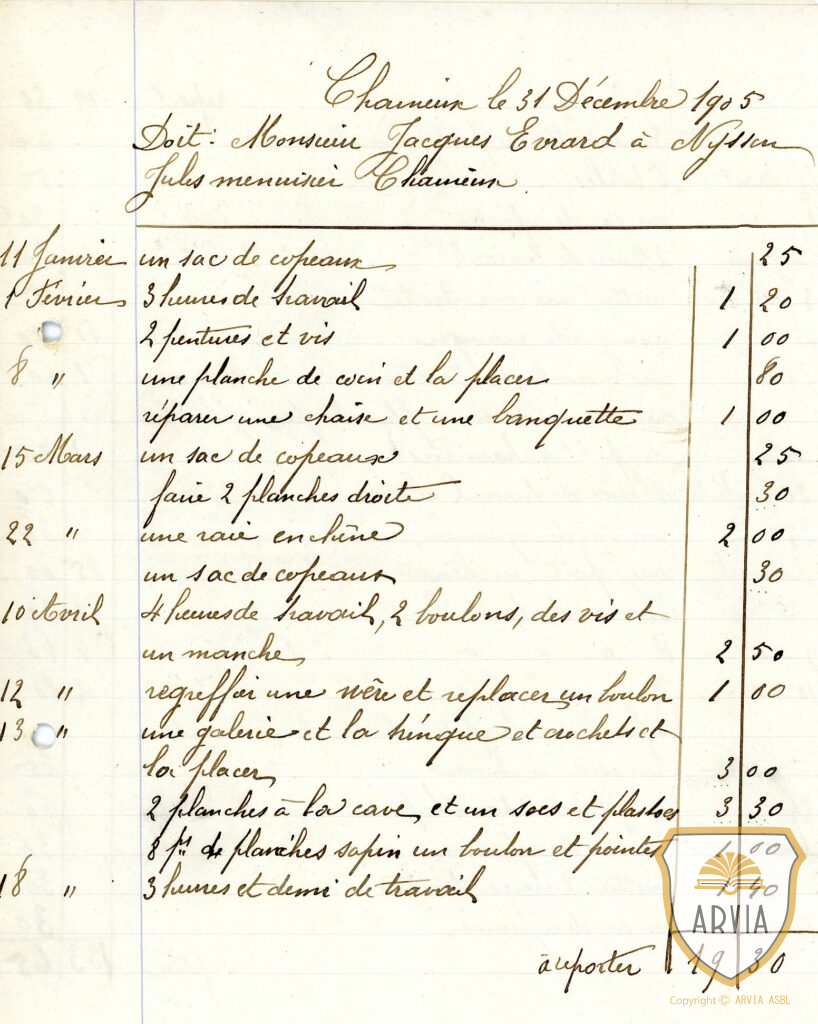 Chaineux le 31 Décembre 1905
Doit: Monsieur Jacques Evrard à Nyssen
Jules menuisier Chaineux
11 Janvier un sac de copeaux 25
1 Février 3 heures de travail 1 20
2 pentures et vis 1 00
8 " une planche de coin et la placer 80
réparer une chaise et une banquette 1 00
15 Mars un sac de copeaux 25
faire 2 planches droite 30
22 " une raie en chêne 2 00
un sac de copeaux 30
10 Avril 4 heures de travail, 2 boulons, des vis et
un manche 2 50
12 " regreffer une et replacer un boulon 1 00
13 " une galerie et la tringue et crochets et
la placer 3 00
2 planches à la cave et un socs et 3 30
8 planches sapin un boulon et pointes 1 00
18 " 3 heures et demi de travail 1 40
à reporter 19 30
ARVIA
Copyright © ARVIA ASBL